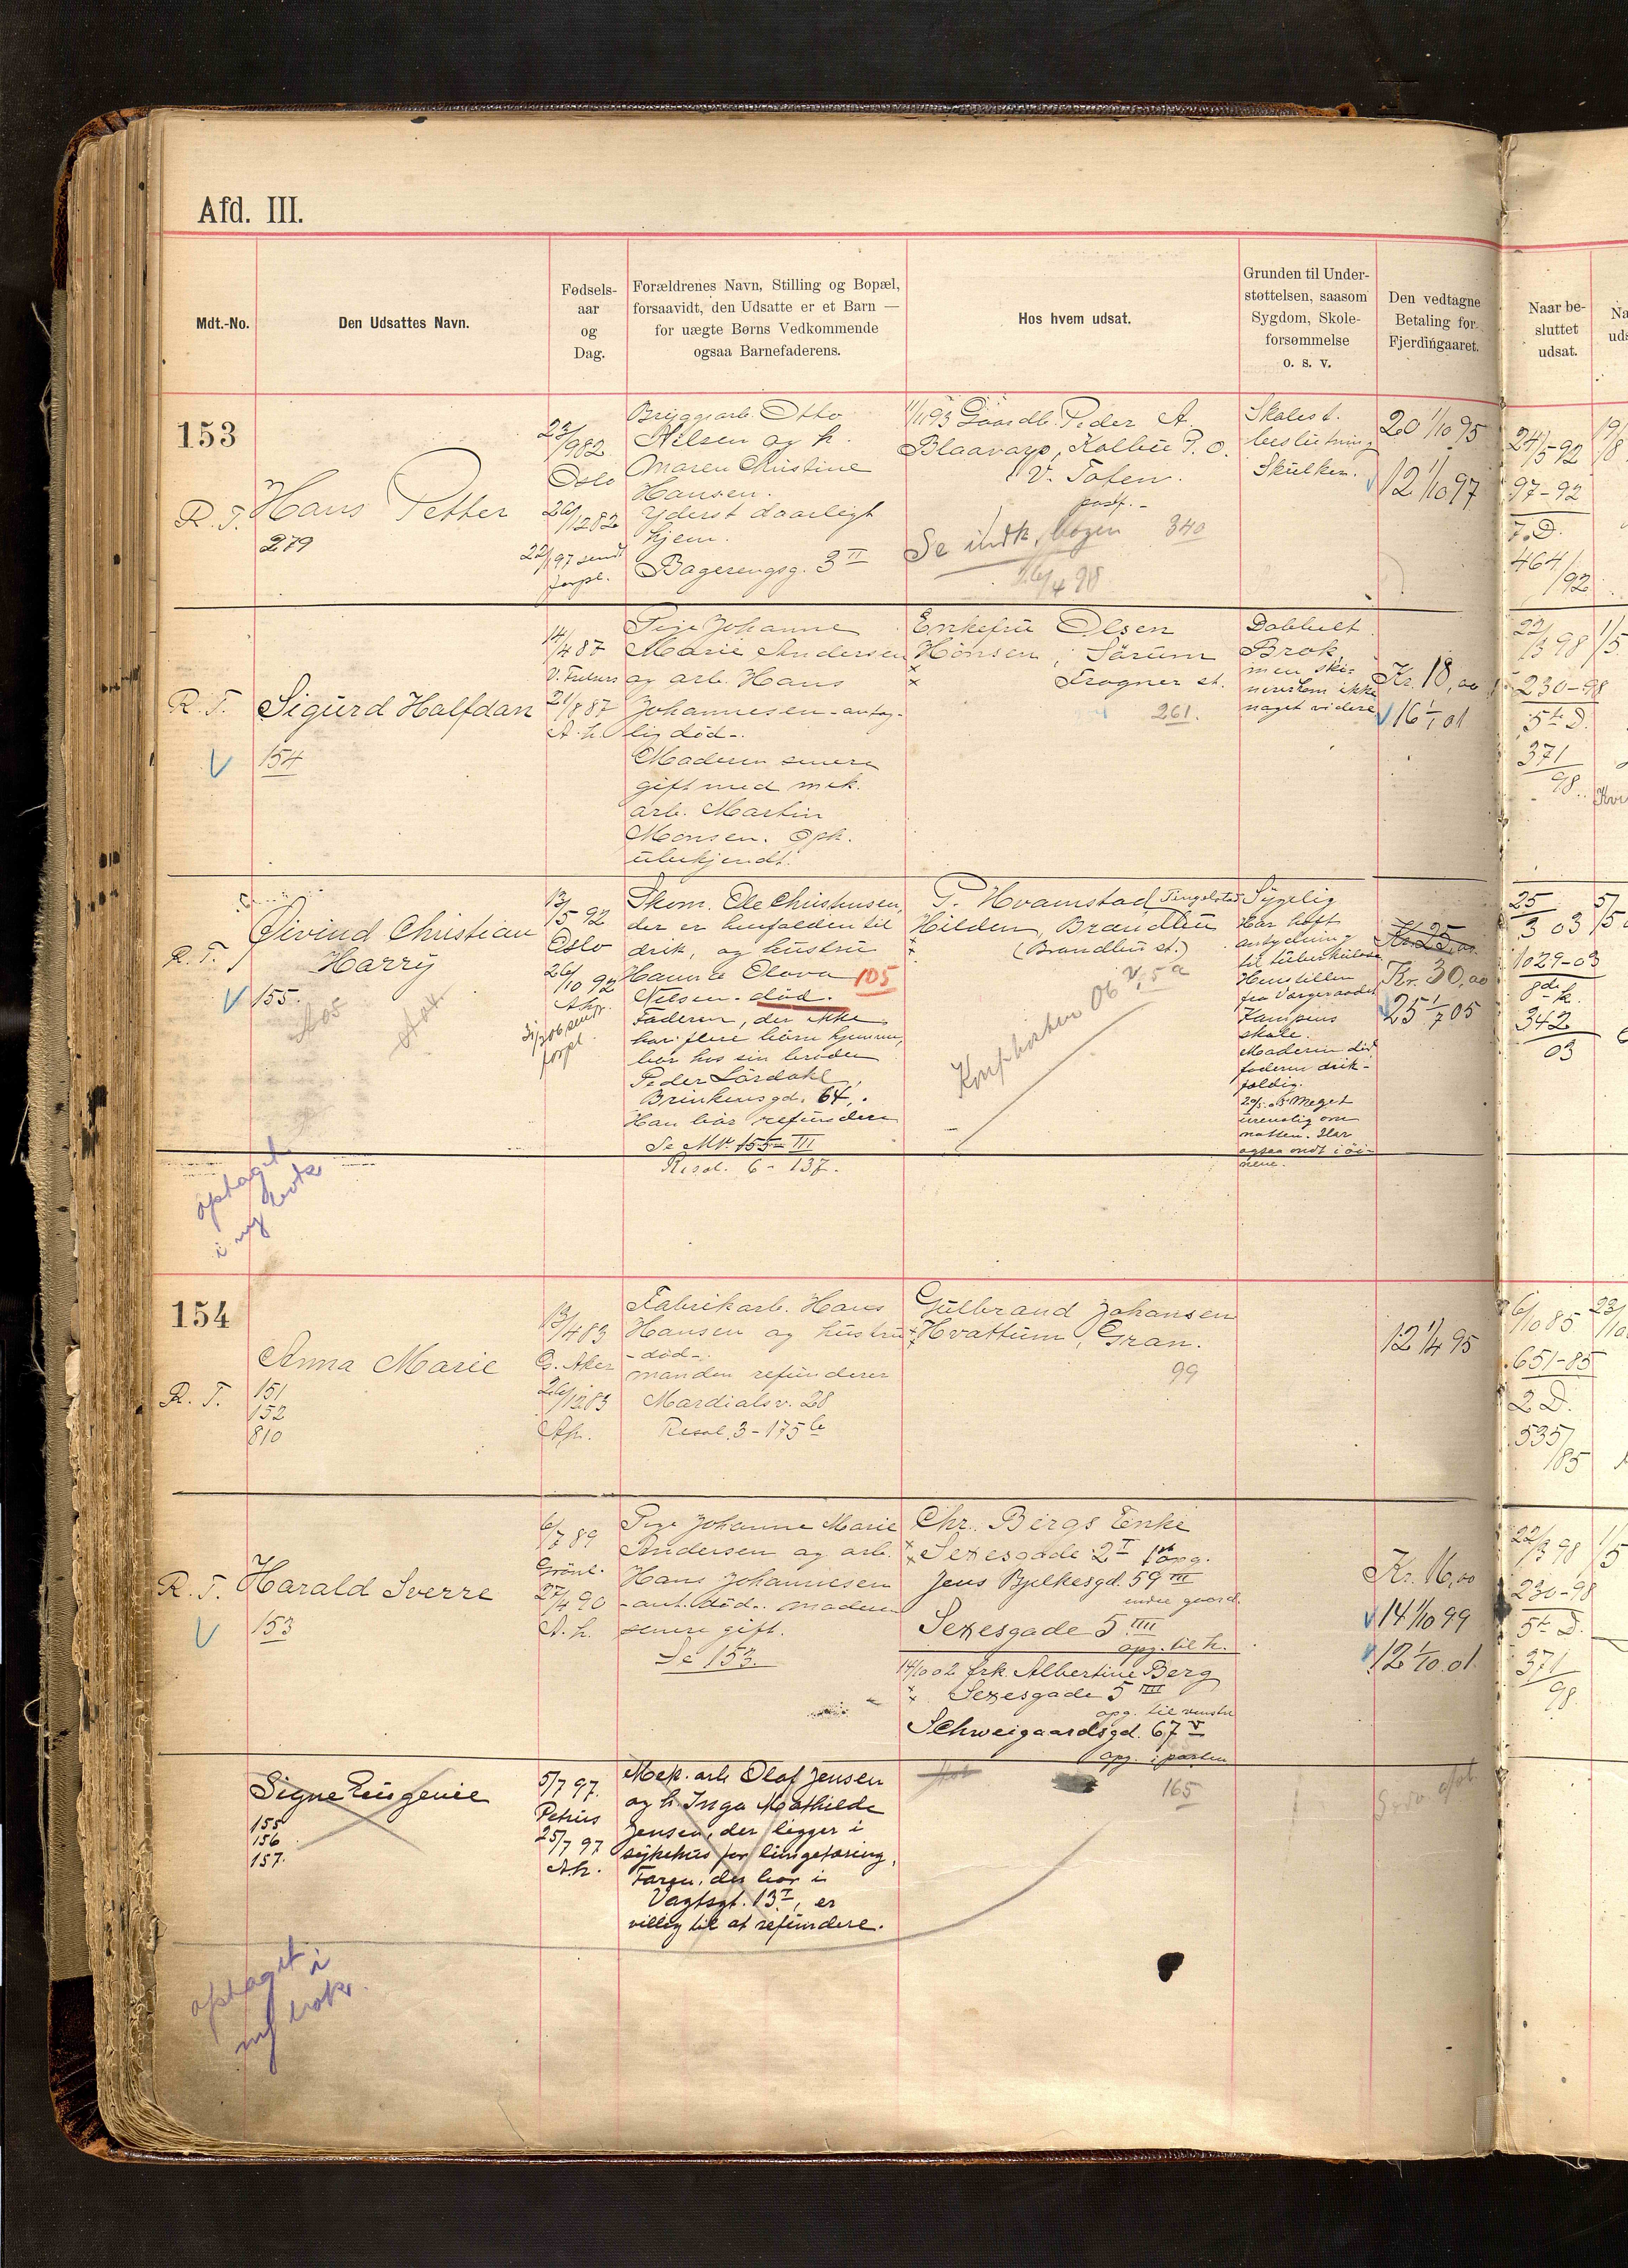 Afd. III.
Mdt.-No.
Den Udsattes Navn.
Fødsels-
aar
og
Dag.
Forældrenes Navn, Stilling og Bopæl,
forsaavidt, den Udsatte er et Barn —
for uægte Børns Vedkommende
ogsaa Barnefaderens.
Hos hvem udsat.
Grunden til Under-
støttelsen, saasom
Sygdom, Skole-
forsømmelse
o. s. v.
Den vedtagne
Betaling for
Fjerdingaaret.
Naar be-
sluttet
udsat.
153
R. T.
Hans Petter
279
22/9 82
Oslo
26/12 82
22/1 97 sendt
forpl.
Bryggearb. Otto
Nilsen og h.
Maren Kristine
Hansen.
Yderst daarligt
hjem.
Bagerengsg. 3 II
1/11 93 Gaardb. Peder A.
Blaavarp, Kolbu P. O.
V. Toten.
postp.-
Se indk. bogen 340
26/4 98
Skolest.
Skulken.
20 1/10 95
12 1/10 97
24/5-92
97-92
7. D.
464/92
R. T.
Sigurd Halfdan
154
14/4 87
21/8 87
A. k.
Pige Johanne
Marie Andersen
og arb. Hans
Johannesen - antag-
lig död -.
Moderen senere
gift med mek.
arb. Martin
Monsen. Oph.
ubekjendt.
Enkefru Olsen
Hönsen, Sörum
Frogner st.
261.
Dobbelt
Brok,
men
ikke
noget videre
Kr. 18,00
16 1/1 01
22/3 98
230-98
5te D.
371/98
R. T.
Øivind Christian
Harry
155.
13/5 92
Oslo
26/10 92
31/3 06 sendt
forpl.
Skom. Ole Christensen,
der er henfalden til
drik, og hustru
Hanna Olava 105
Nilsen - död.
Faderen, der ikke
har flere börn hjemme,
bor hos sin broder
Peder Lördahl,
Brinkensgd. 64,.
Han bör refundere
Se Mt. 155 III
Resol. 6 - 137.
P. Hvamstad Tingelstad
Hilden, Brandbu
(Brandbu st.)
Sygelig
Har havt
antydning
til tuberkulose
Henstillen
fra Vergeraadet
Kampens
skole.
Moderen död
faderen drik-
fældig.
20/5 05 Meget
urenslig om
natten. Har
ogsaa ondt i öi-
nene.
Kr. 25,00
Kr. 30,00
25 1/7 05
25/3 03
1029-03
8de k.
342/03
optaget
i ny bok
154
R. T.
Anna Marie
151
152
810
13/4 83
G. Aker
26/12 83
Ap.
Fabrikarb. Hans
Hansen og hustru
- död -.
manden refunderer
Maridalsv. 28
Resol. 3 - 175 b
Gulbrand Johansen
Hvattum, Gran.
99
12 1/4 95
6/10 85
651-85
2 D.
535/85
R. T.
Harald Sverre
153
6/7 89
Grönl.
27/4 90
A. k.
Pige Johanne Marie
Andersen og arb.
Hans Johannesen
- ant. död -. moderen
senere gift.
Se 153.
Chr. Bergs Enke
Sexesgade 2 I 1ste opg.
Jens Bjelkesgd. 59 III
indre gaard.
Sexesgade 5 IIII
opg. til h.
14/10 02 frk. Albertine Berg
Sexesgade 5 IIII
opg. til venstre
Schweigaardsgd. 67 V
opg. i porten
Kr. 16,00
14 1/10 99
12 1/10 01
22/3 98
230-98
5te D.
371/98
Signe Eugenie
155
156
157.
5/7 97.
Petrus
25/7 97
A.k.
Mek. arb. Olaf Jensen
og h. Inga Mathilde
Jensen, der ligger i
sykehus for lungetæring,
Faren, der bor i
Vagtsgt. 13 I, er
villig til at refundere.
165
optaget i
ny bok.